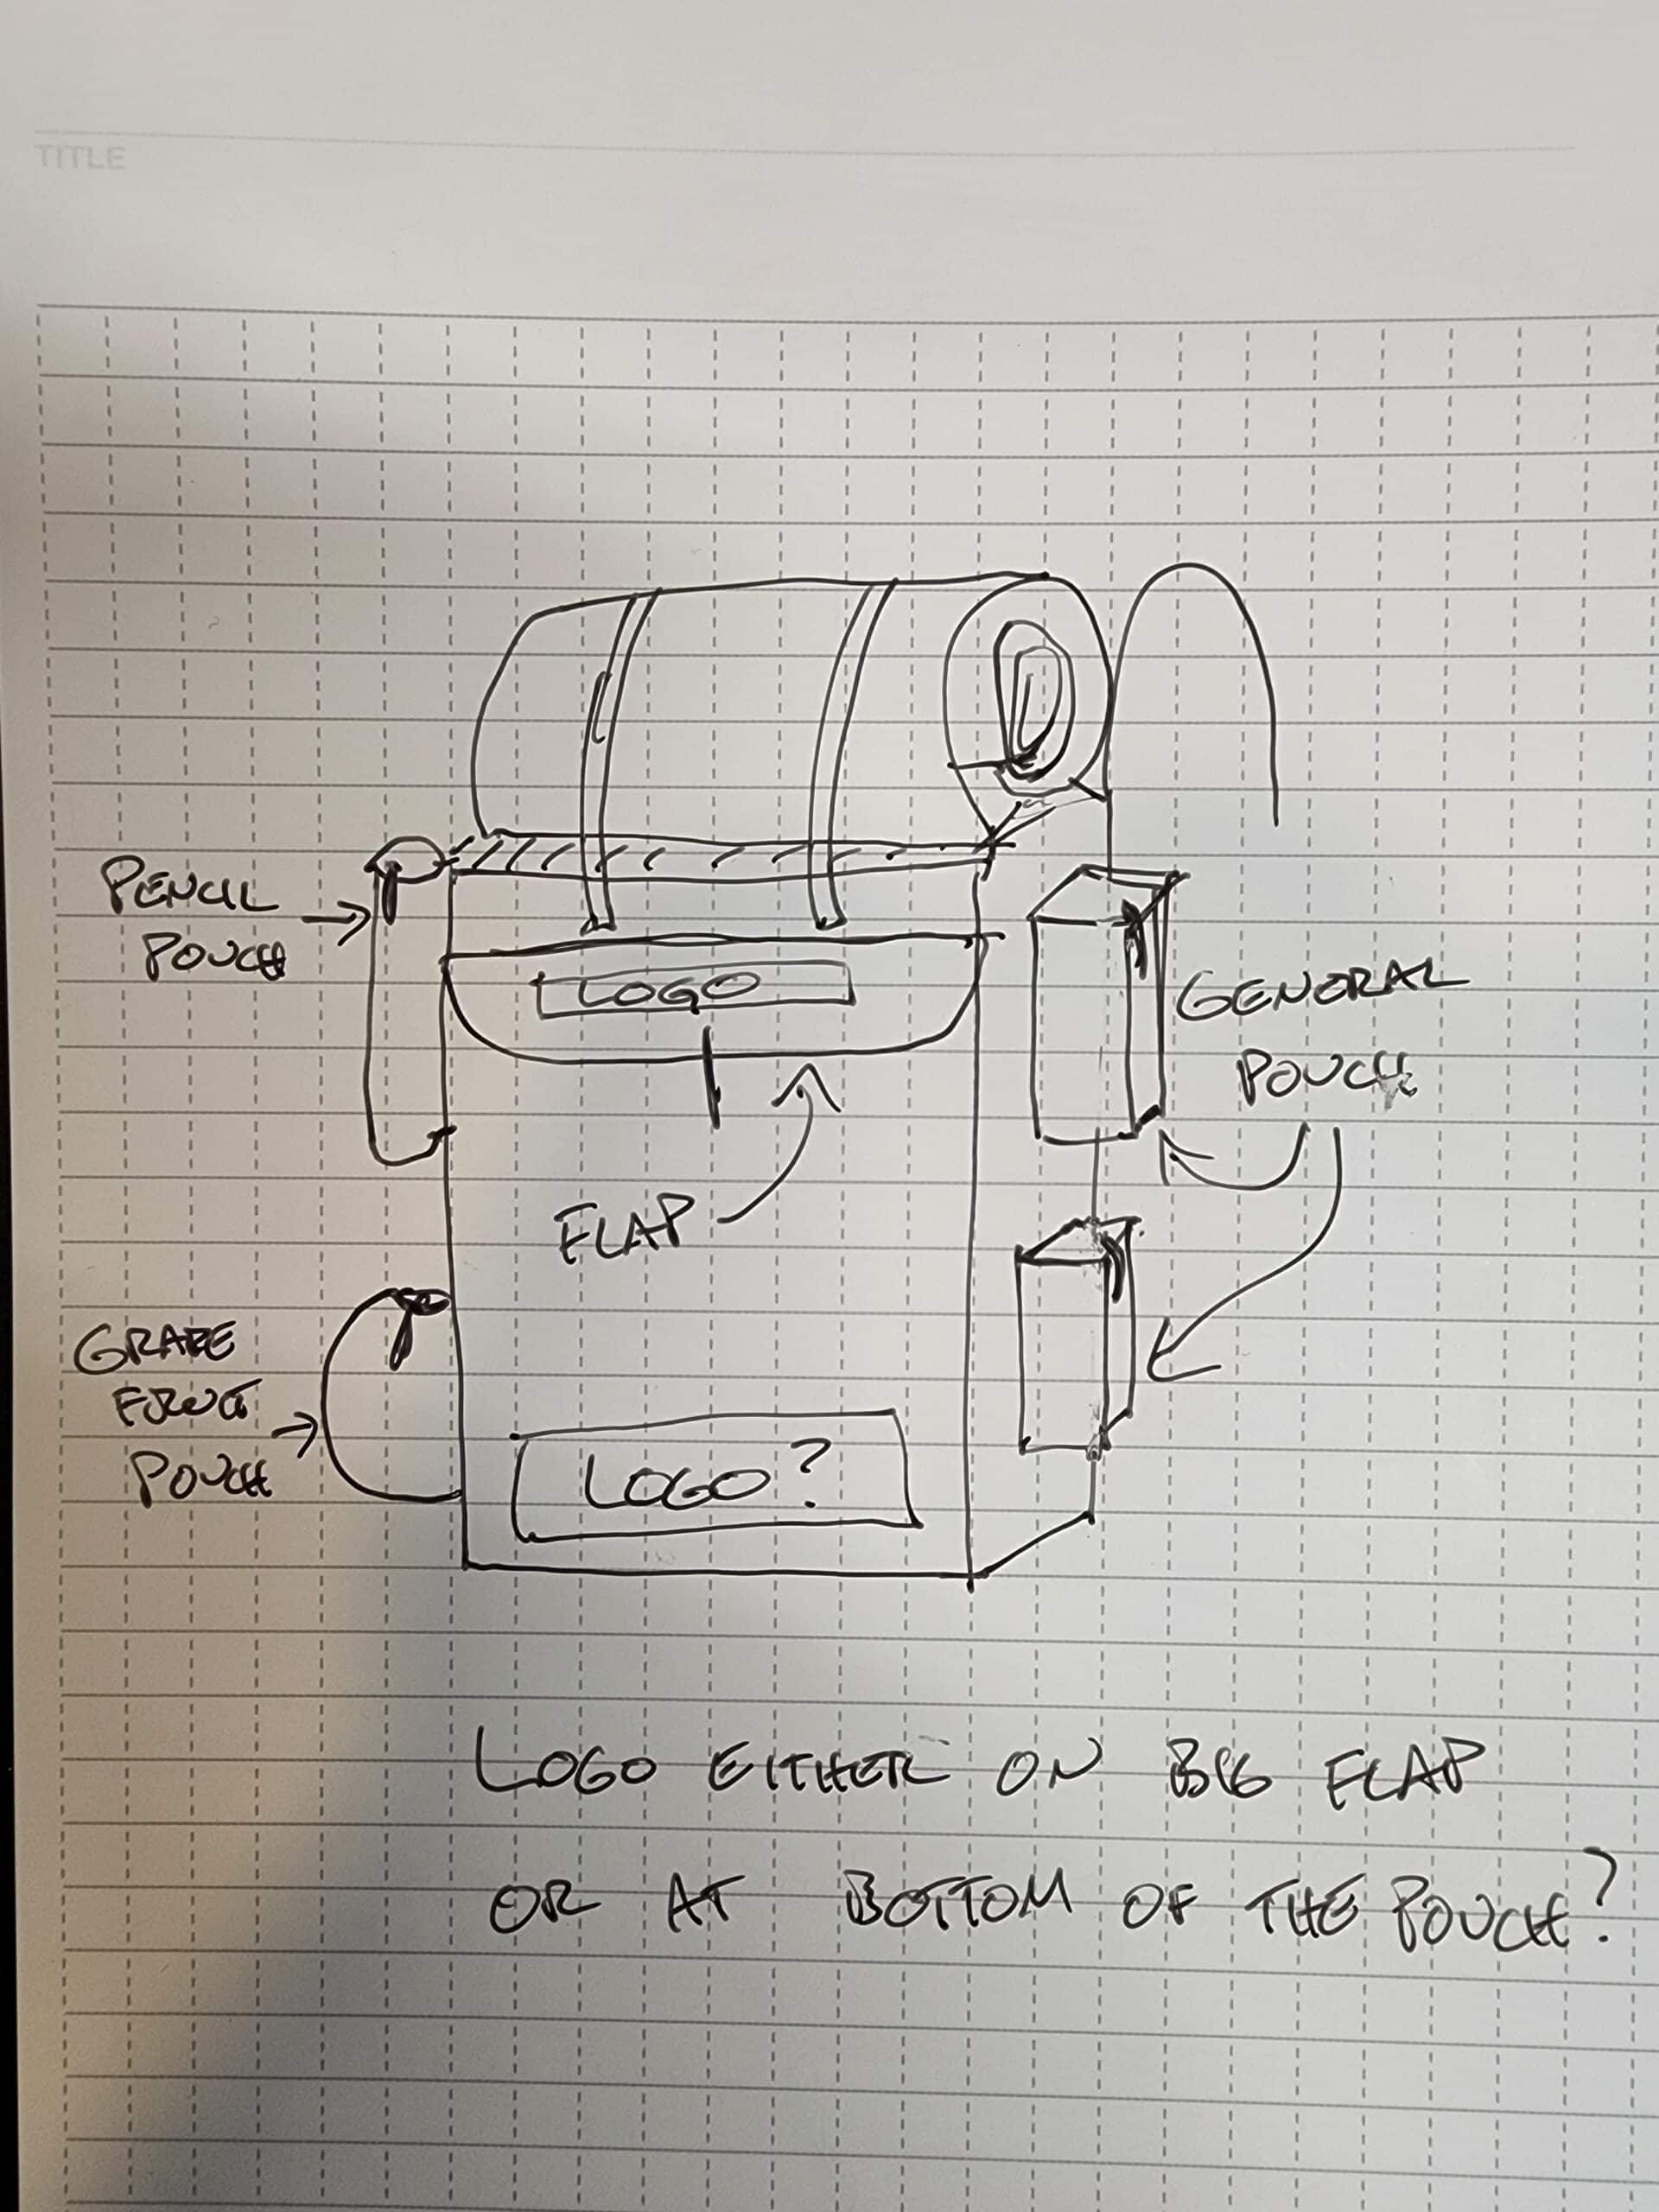 TITLE
PENCIL
POUCH
LOGO
GENERAL
POUCH
FLAP
GRAPE
FRUIT
POUCH
LOGO?
LOGO EITHER ON BIG FLAP
OR AT BOTTOM OF THE POUCH?